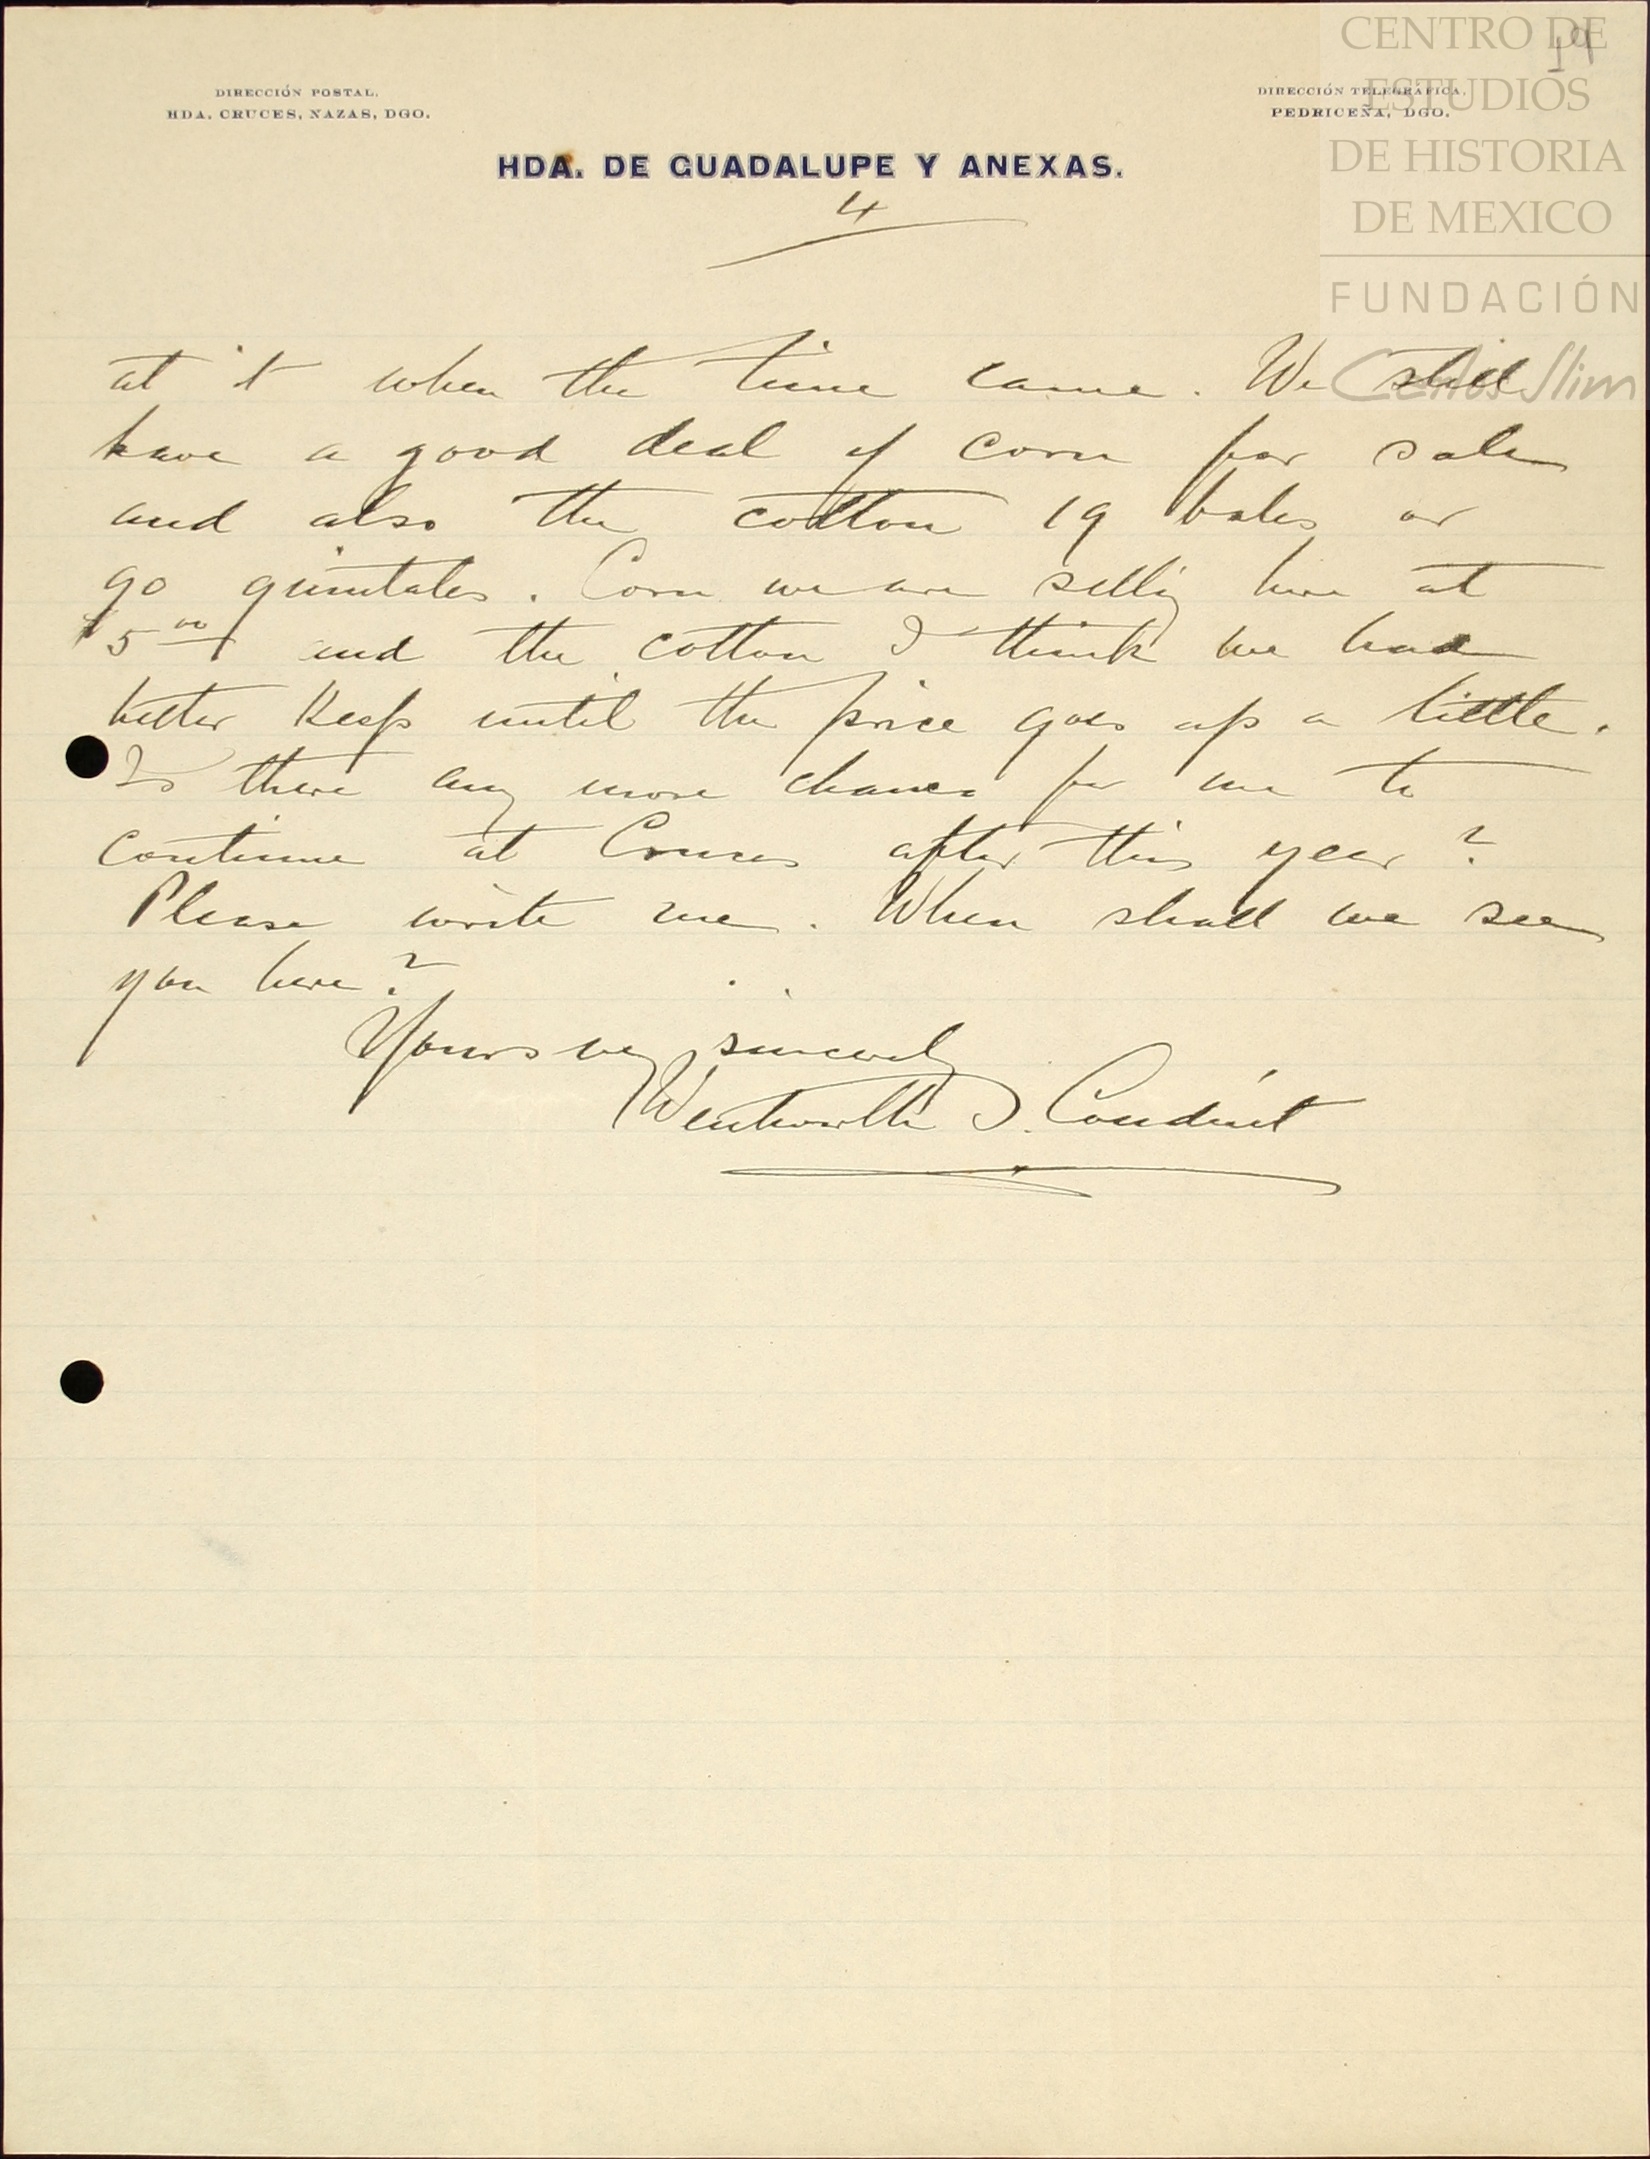 CENTRO DE
ESTUDIOS
DE HISTORIA
DE MEXICO
FUNDACIÓN
Carlos Slim
19
DIRECCIÓN POSTAL.
HDA. CRUCES, NAZAS, DGO.
DIRECCIÓN TELEGRÁFICA.
PEDRICEÑA, DGO.
HDA. DE GUADALUPE Y ANEXAS.
4
at it when the time came. We still
have a good deal of corn for sale
and also the cotton 19 bales or
90 quintales. Corn we are selling here at
$5.00 and the cotton I think we had
better keep until the price goes up a little.
Is there any more chance for me to
continue at Cruces after this year?
Please write me. When shall we see
you here?
Yours very sincerely
Wentworth I. Conduit